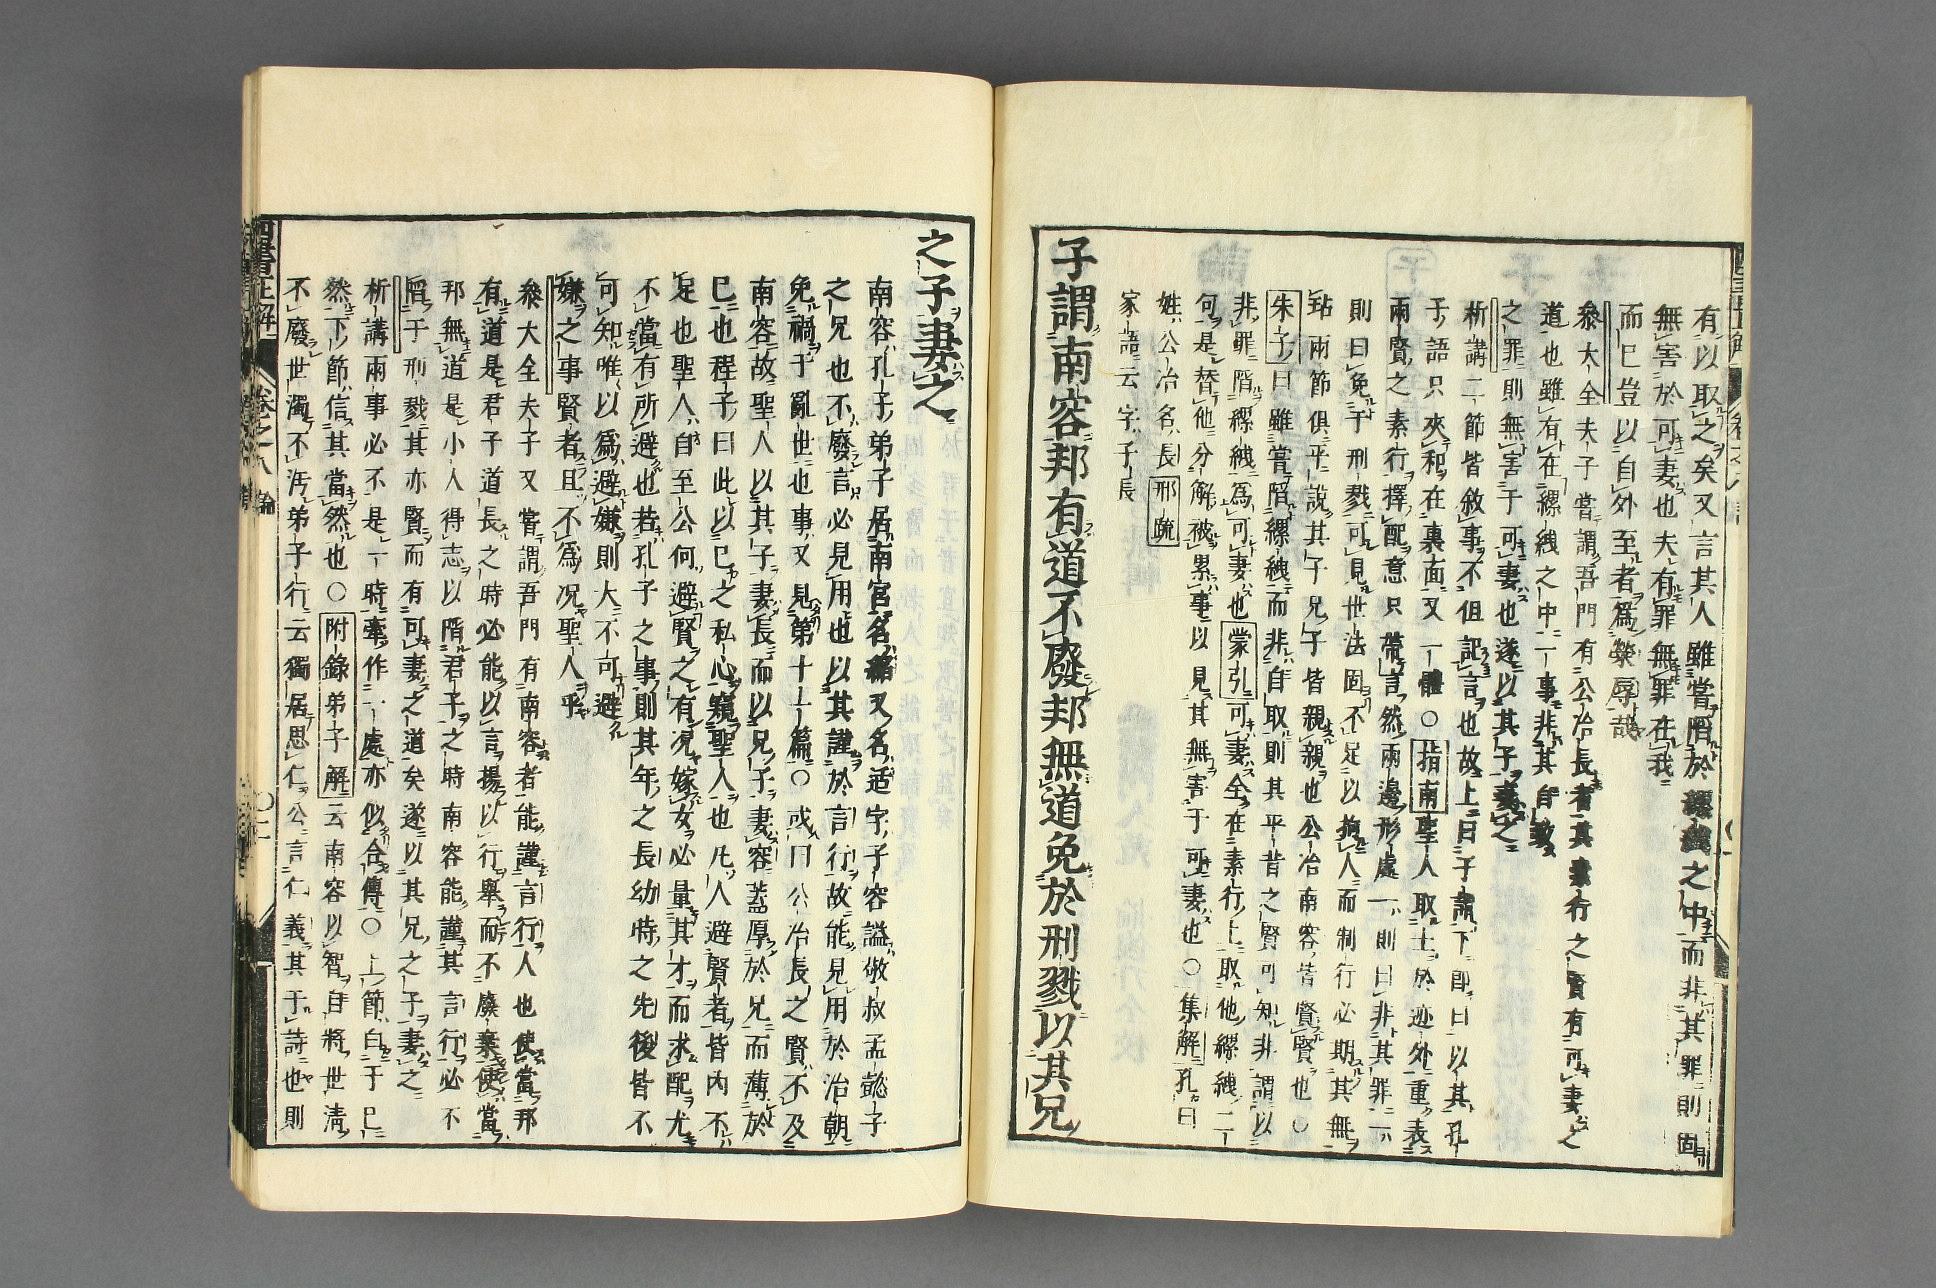 有以取之矣又言其人雖嘗陷於縲絏之中而非其罪則固
無害於可妻也夫有罪無罪在我
而已豈以自外至者為榮辱哉
叅大全夫子嘗謂吾門有公冶長者其素行之賢有可妻之
道也雖有在縲絏之中一事非其自致
之罪則無害于可妻也遂以其子妻之
析講二節皆敘事不但記言也故上曰子謂下即曰以其孔
子語只夾和在裏面又一體○指南聖人取士於迹外重表
兩賢之素行擇配意只帶言然兩邊形處一則曰非其罪一
則曰免于刑戮可見世法固不足以拘人而制行必期其無
玷兩節俱平說其子兄子皆親親也公冶南容皆賢賢也○
朱子曰雖嘗陷縲絏而非自取則其平昔之賢可知非謂以
非罪陷縲絏為可妻也蒙引可妻全在素行上取他縲絏二
句是替他分解被累事以見其無害于可妻也○集解孔曰
姓公冶名長邢疏
家語云字子長
子謂南容邦有道不廢邦無道免於刑戮以其兄
之子妻之
南容孔子弟子居南宮名縚又名适字子容謚敬叔孟懿子
之兄也不廢言必見用也以其謹於言行故能見用於治朝
免禍于亂世也事又見第十一篇○或曰公冶長之賢不及
南容故聖人以其子妻長而以兄子妻容蓋厚於兄而薄於
已也程子曰此以已之私心窺聖人也凡人避賢者皆內不
足也聖人自至公何避賢之有况嫁女必量其才而求配尤
不當有所避也若孔子之事則其年之長幼時之先後皆不
可知唯以為避嫌則大不可避
嫌之事賢者且不為况聖人乎
叅大全夫子又嘗謂吾門有南容者能謹言行人也使當邦
有道是君子道長之時必能以言揚以行舉而不廢棄使當
邦無道是小人得志以陷君子之時南容能謹其言行必不
䧟于刑戮其亦賢而有可妻之道矣遂以其兄之子妻之
析講兩事必不是一時牽作一處亦似合傳○上節白于已
然下節信其當然也○附錄弟子解云南容以智自將世淸
不廢世濁不汚弟子行云獨居思仁公言仁義其于詩也則